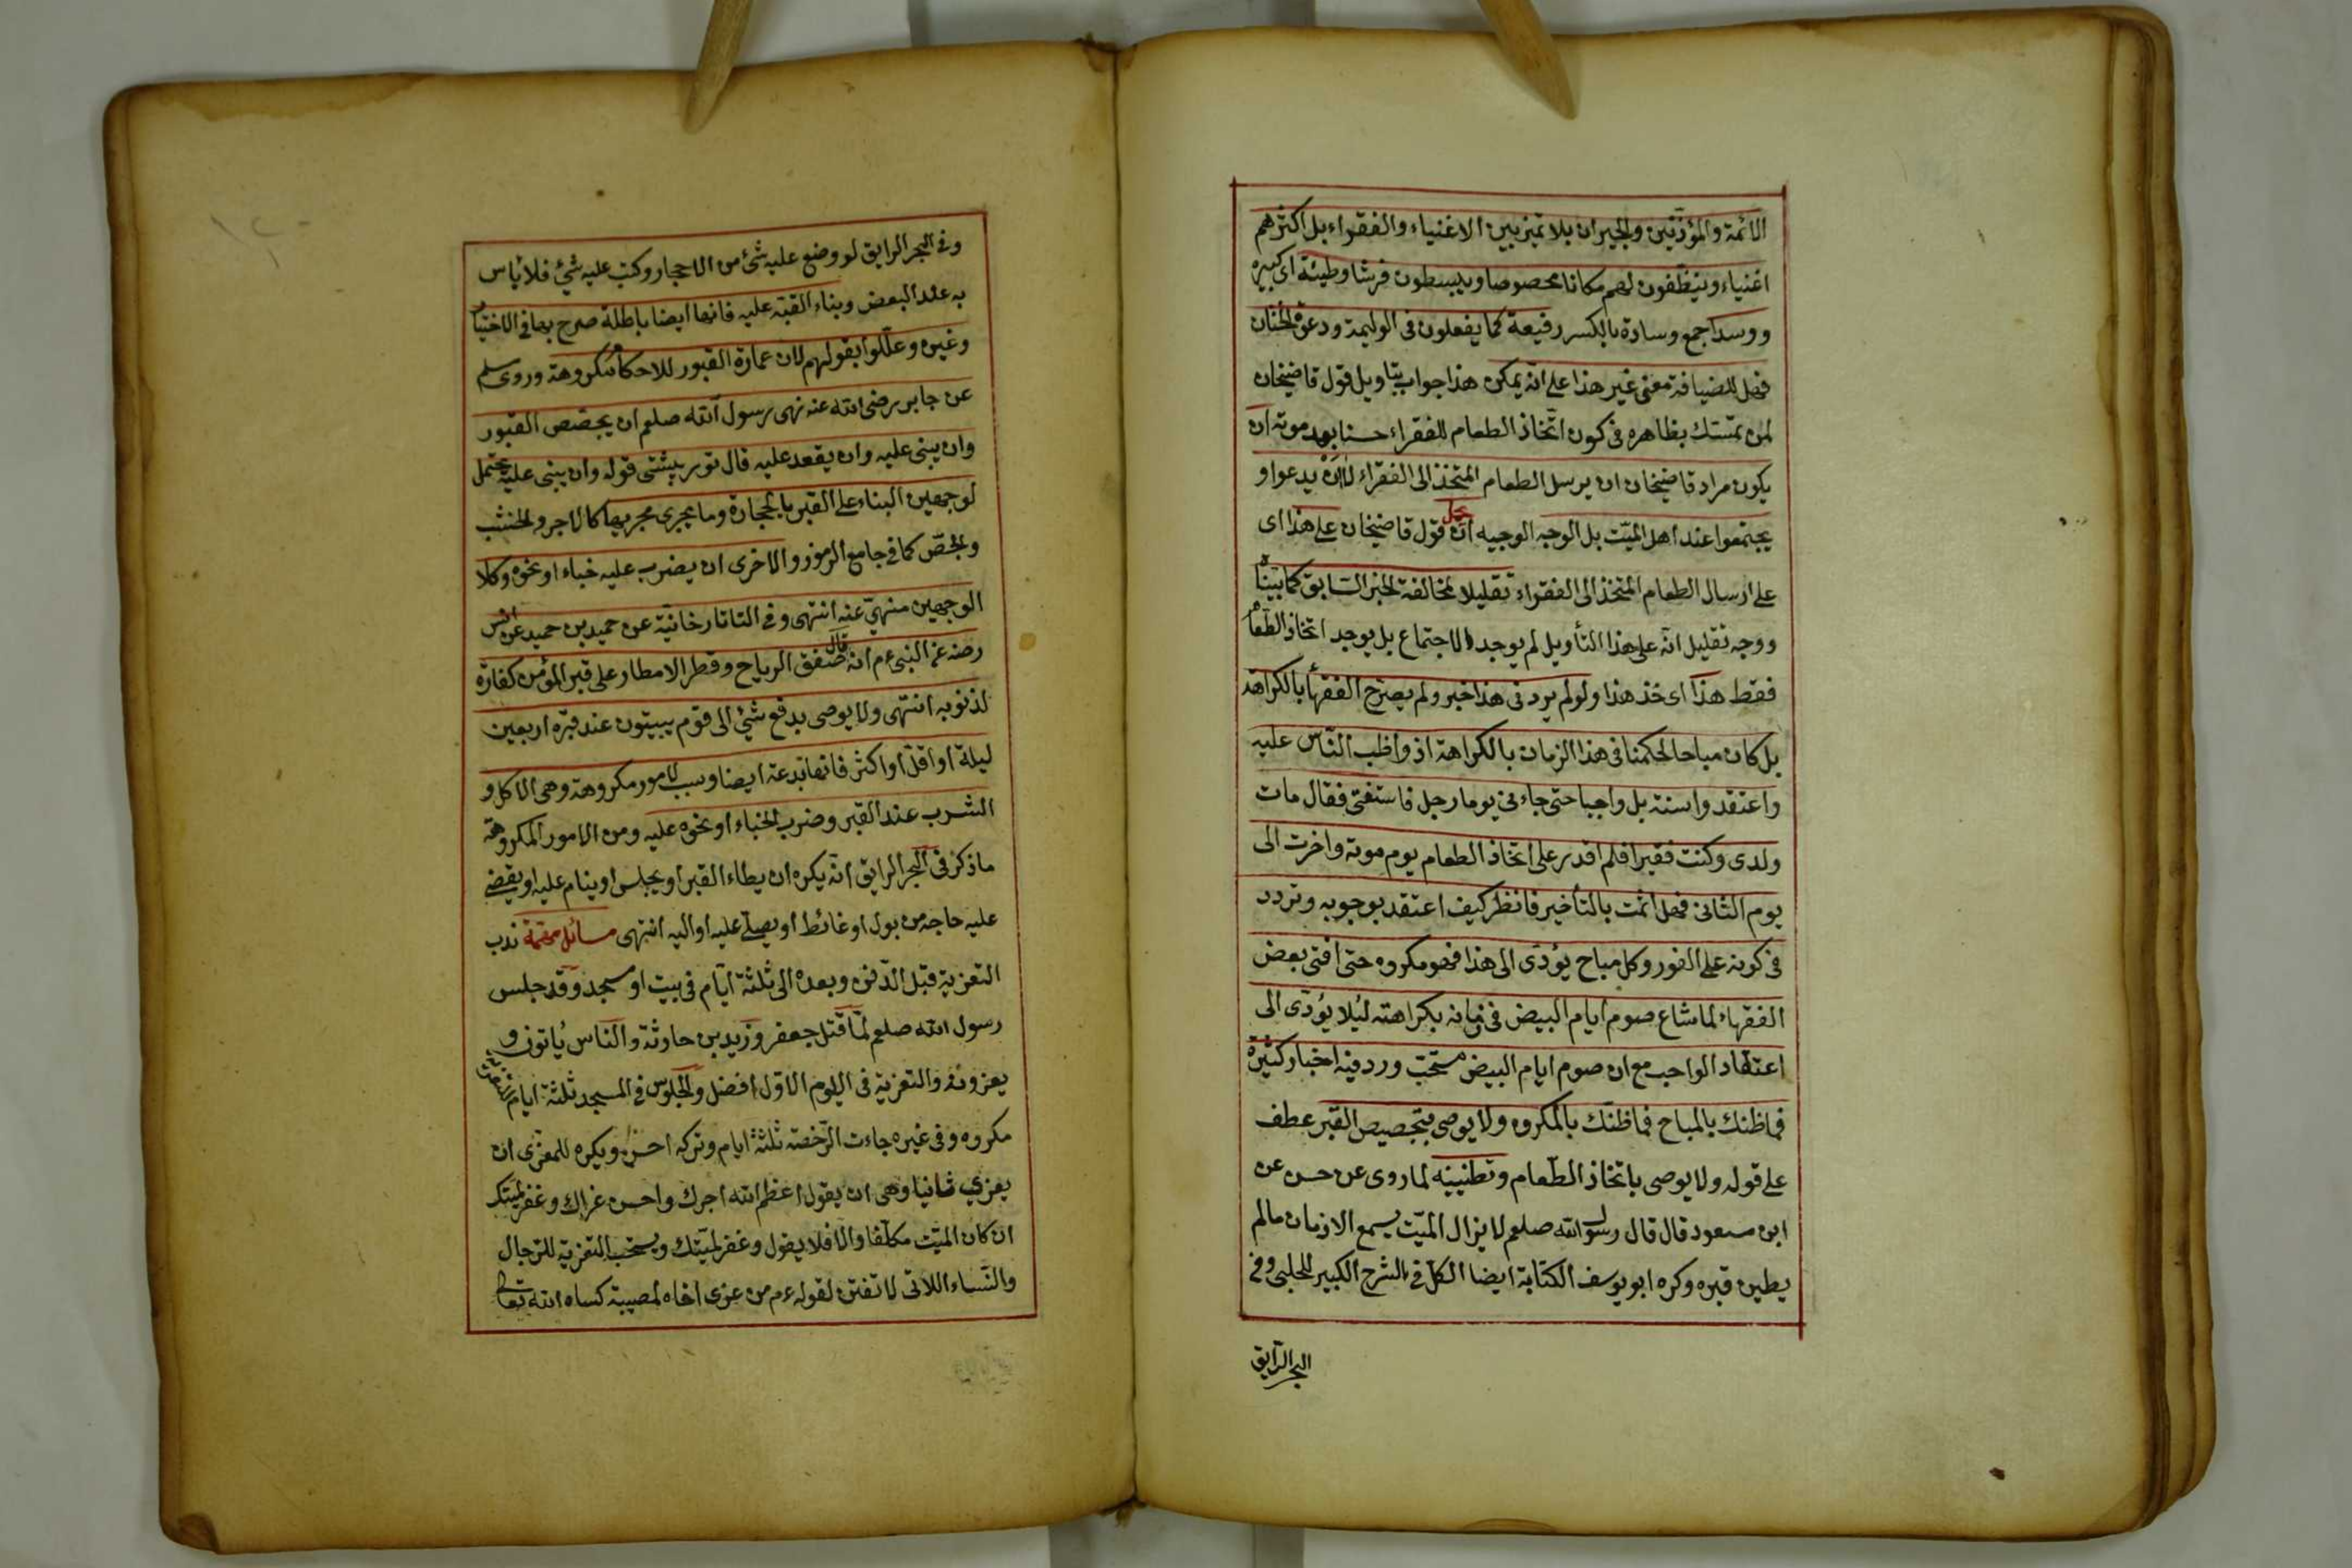 الائمة والمؤذنين والجيران بلا تميز بين الاغنياء والفقراء بل اكثرهم
اغنياء وينظفون لهم مكانا مخصوصا ويبسطون فرشا وطيئة اى كبيرة
ووسدا جمع وسادة بالكسر رفيعة كما يفعلون فى الوليمة ودعوة الختان
فهل للضيافة معنى غير هذا على انه يمكن هذا جواب بتاويل قول قاضيخان
لمن تمسك بظاهره فى كون اتخاذ الطعام للفقراء حسنا بعد موته ان
يكون مراد قاضيخان ان يرسل الطعام المتخذ الى الفقراء لا ان يدعوا و
يجتمعوا عند اهل الميت بل الوجه الوجيه ان يحمل قول قاضيخان على هذا اى
على ارسال الطعام المتخذ الى الفقراء تقليلا لمخالفة الخبر السابق كما بيناه
ووجه تقليل انه على هذا التأويل لم يوجد الاجتماع بل يوجد اتخاذ الطعام
فقط هذا اى خذ هذا ولو لم يرد فى هذا خبر ولم يصرح الفقهأ بالكراهة
بل كان مباحا لحكمنا فى هذا الزمان بالكراهة اذ واظب الناس عليه
واعتقدوا سنة بل واجبا حتى جاء نى يوما رجل فاستفتى فقال مات
ولدى وكنت فقيرا فلم اقدر على اتخاذ الطعام يوم موته واخرت الى
يوم الثانى فهل اثمت بالتأخير فانظر كيف اعتقد بوجوبه وتردد
فى كونه على الفور وكل مباح يؤدى الى هذا فهو مكروه حتى افتى بعض
الفقهاء لما شاع صوم ايام البيض فى زمانه بكراهته ليلا يؤدى الى
اعتقاد الواجب مع ان صوم ايام البيض مستحب ورد فيه اخبار كثيرة
فما ظنك بالمباح فما ظنك بالمكروه ولا يوصى بتجصيص القبر عطف
على قوله ولا يوصى باتخاذ الطعام وتطيينه لما روى عن حسن عن
ابن مسعود قال قال رسول الله صلعم لا يزال الميت يسمع الاذان مالم
يطين قبره وكره ابو يوسف الكتابة ايضا الكل فى الشرح الكبير للحلبى وفى
البحر الرايق
وفى البحر الرايق لو وضع عليه شئ من الاحجار وكتب عليه شئ فلا بأس
به عند البعض وبناء القبة عليه فانها ايضا باطلة صرح بها فى الاختيار
وغيره وعللوا بقولهم لان عمارة القبور للاحكام مكروهة وروى مسلم
عن جابر رضى الله عنه نهى رسول الله صلعم ان يجصص القبور
وان يبنى عليه وان يقعد عليه قال تورپشتى قوله وان يبنى عليه يحتمل
لوجهين البناء على القبر بالحجارة وما يجرى مجريها كالاجر والخشب
والجص كما فى جامع الرموز والاخرى ان يضرب عليه خباء او نحوه وكلا
الوجهين منهى عنه انتهى وفى التاتارخانية عن حميد بن حميد عن انس
رضه عن النبى ءم انه قال صفق الرياح وقطر الامطار على قبر المؤمن كفارة
لذنوبه انتهى ولا يوصى بدفع شئ الى قوم يبيتون عند قبره اربعين
ليلة او اقل او اكثر فانها بدعة ايضا وسبب لامور مكروهة وهى الاكل و
الشرب عند القبر وضرب الخباء او نحوه عليه ومن الامور المكروهة
ما ذكر فى البحر الرايق انه يكره ان يطاء القبر او يجلس او ينام عليه او يقضى
عليه حاجة من بول او غائط او يصلى عليه او اليه انتهى مسائل مهمة ندب
التعزية قبل الدفن وبعده الى ثلثة ايام فى بيت او مسجد وقد جلس
رسول الله صلعم لما قتل جعفر وزيد بن حارثة والناس يأتون و
يعزونه والتعزية فى اليوم الاول افضل والجلوس فى المسجد ثلثة ايام
مكروه وفى غيره جاءت الرخصة ثلثة ايام وتركه احسن ويكره للمعزى ان
يعزي ثانيا وهى ان يقول اعظم الله اجرك واحسن عزاك وغفر لميتك
ان كان الميت مكلفا والا فلا يقول وغفر لميتك ويستحب التعزية للرجال
والنساء اللاتى لا تفتن لقوله ءم من عزى اخاه لمصيبة كساه الله تعالى